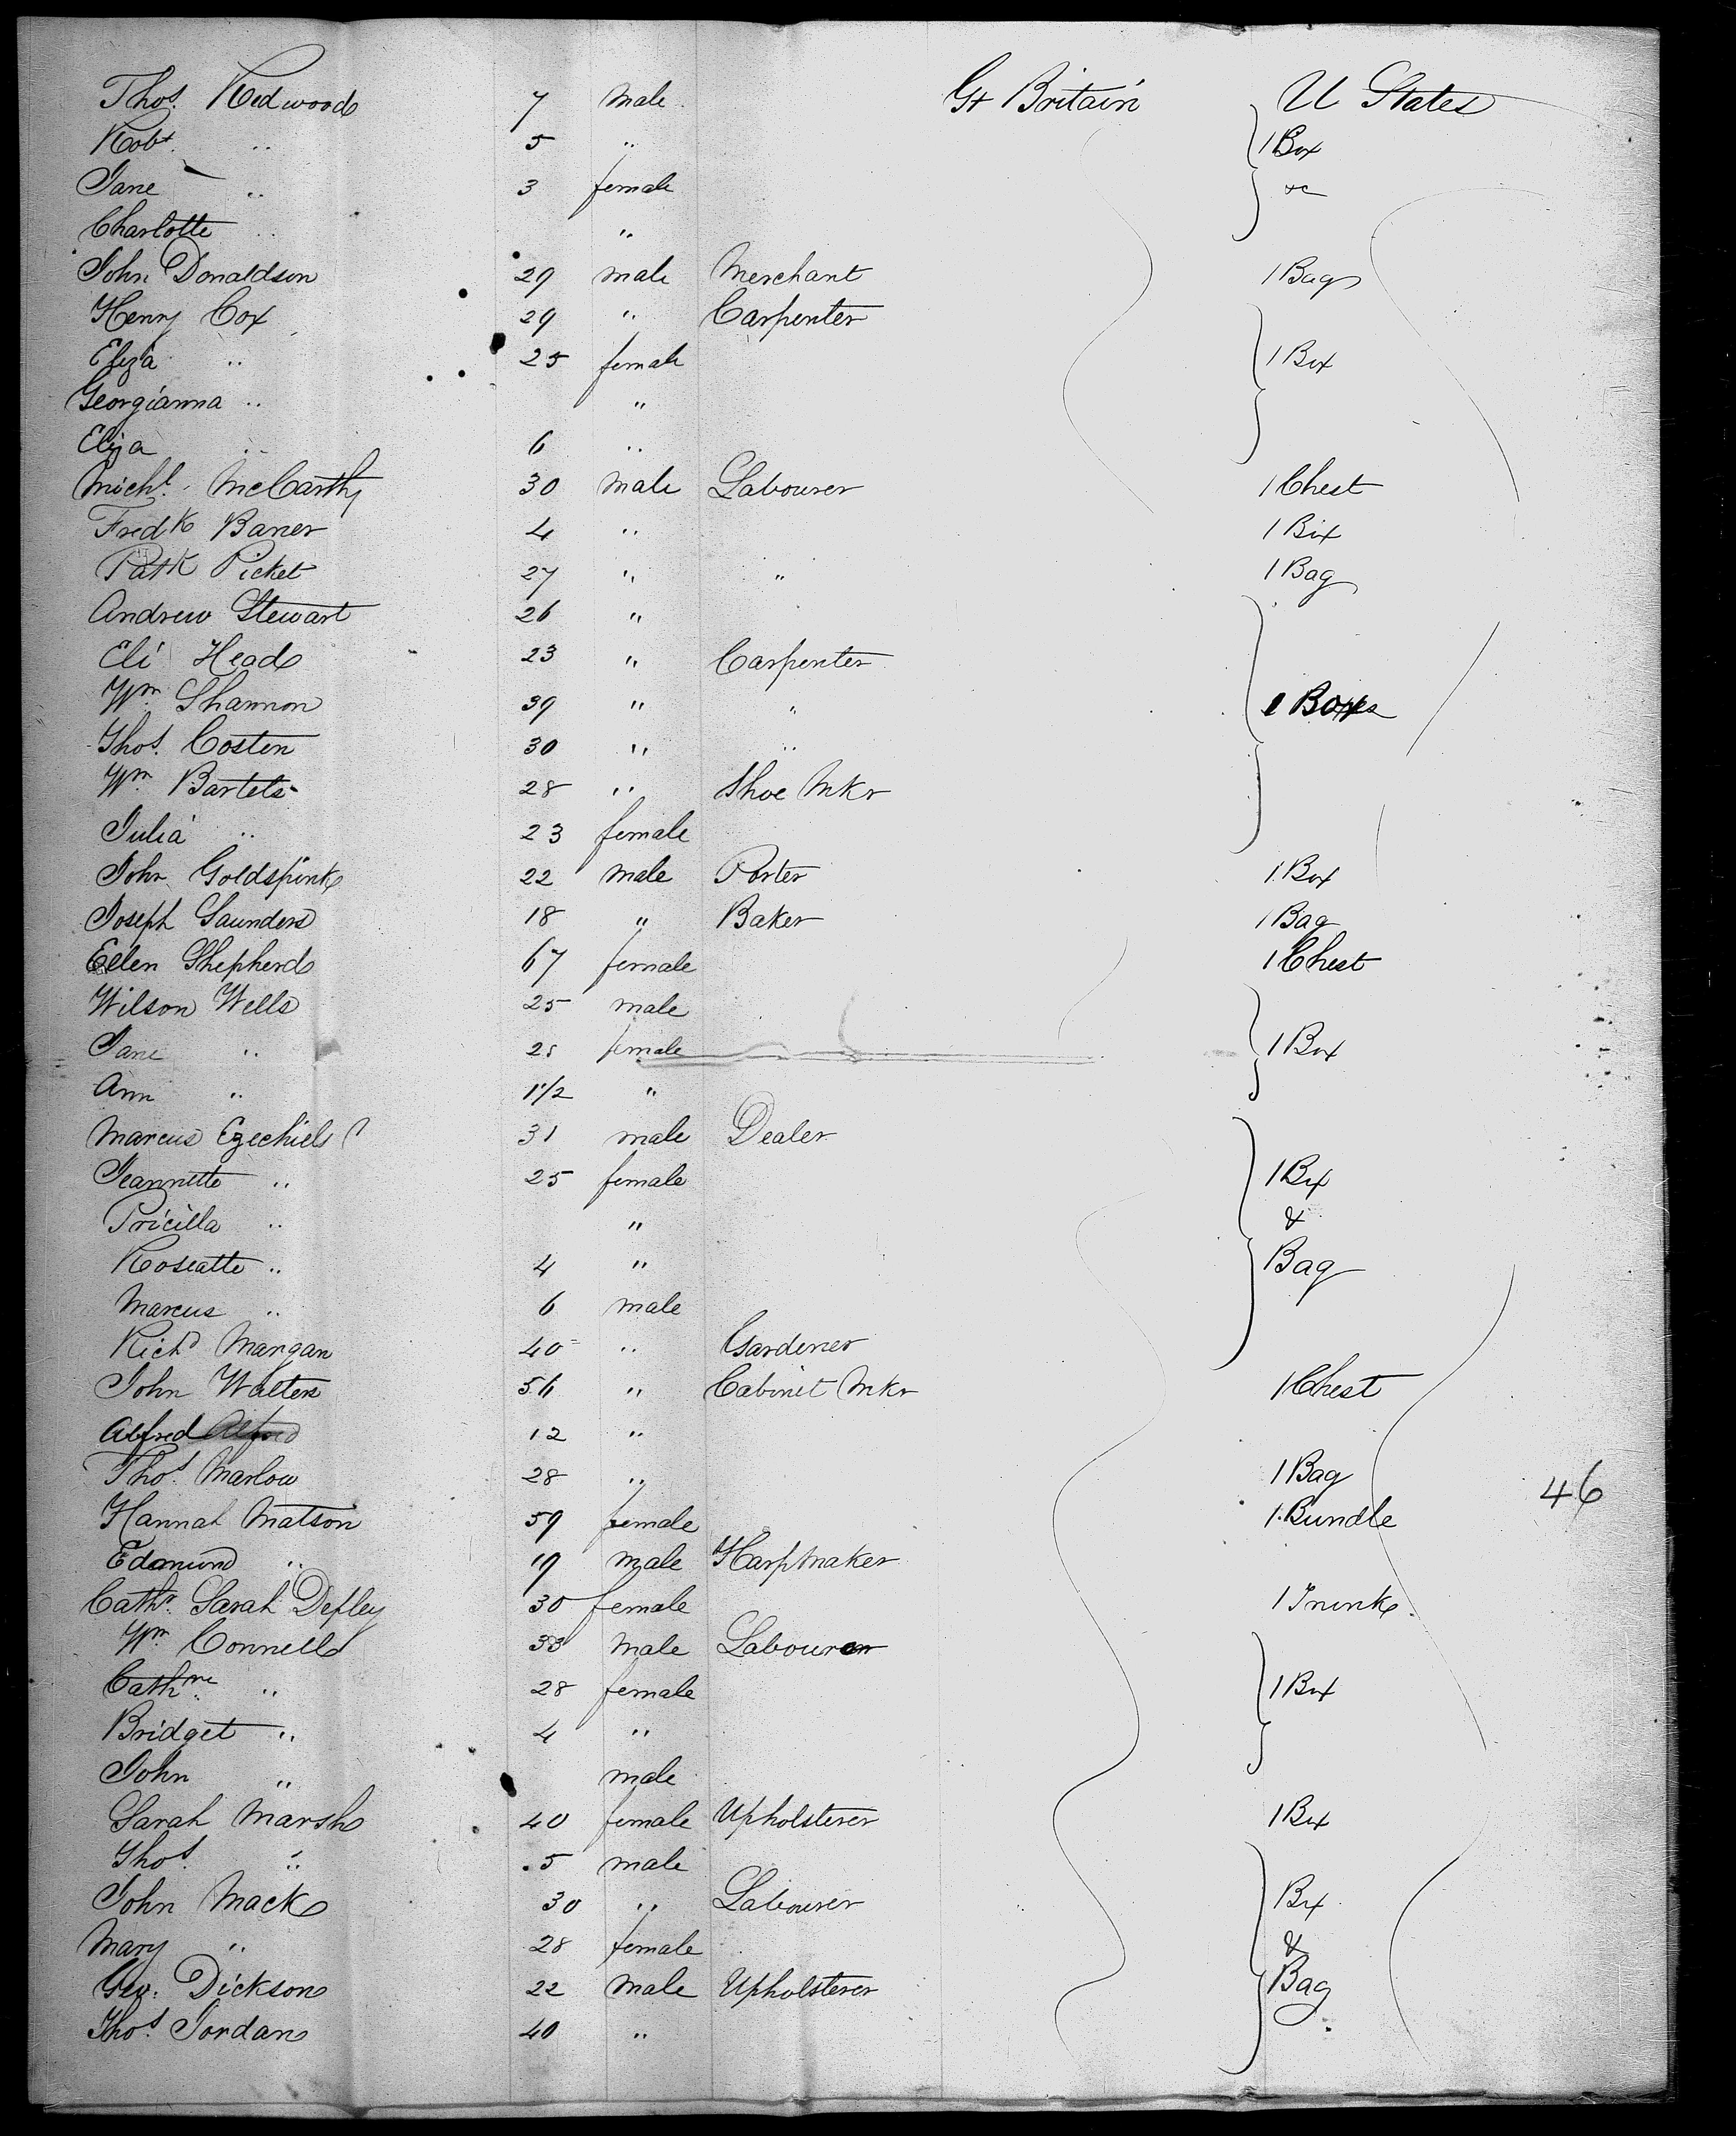 Thos. Redwood 7 male Gt Britain U States
Robt. " 5 " 1 Box
Jane " 3 female &c
Charlotte " "
John Donaldson 29 male Merchant 1 Bag
Henry Cox 29 " Carpenter
Eliza " 25 female 1 Box
Georgianna " "
Eliza " 6 "
Michl. McCarthy 30 male Labourer 1 Chest
Fredk Baner 4 " 1 Box
Patk Picket 27 " " 1 Bag
Andrew Stewart 26 "
Eli Head 23 " Carpenter
Wm. Shannon 39 " " Boxes
Thos. Costen 30 " "
Wm. Bartels 28 " Shoe Mkr
Julia " 23 female
John Goldspink 22 male Porter 1 Box
Joseph Saunders 18 " Baker 1 Bag
Ellen Shepherd 67 female 1 Chest
Wilson Wells 25 male
Jane " 25 female 1 Box
Ann " 1 1/2 "
Marcus Ezechiels 31 male Dealer
Jeannette " 25 female 1 Box
Pricilla " " &
Roseatte " 4 " Bag
Marcus " 6 male
Richd Mangan 40 " Gardener
John Walters 56 " Cabinet Mkr 1 Chest
Alfred 12 "
Thos. Marlow 28 " 1 Bag
46
Hannah Matson 59 female 1 Bundle
Edmund " 19 male Harpmaker
Cathn. Sarah Depley 30 female 1 Trunk
Wm. Connell 33 male Labourer
Cathne " 28 female 1 Box
Bridget " 4 "
John " male
Sarah Marsh 40 female Upholsterer 1 Box
Thos. " 5 male
John Mack 30 " Labourer Box
Mary " 28 female &
Geo. Dickson 22 male Upholsterer Bag
Thos. Jordan 40 "